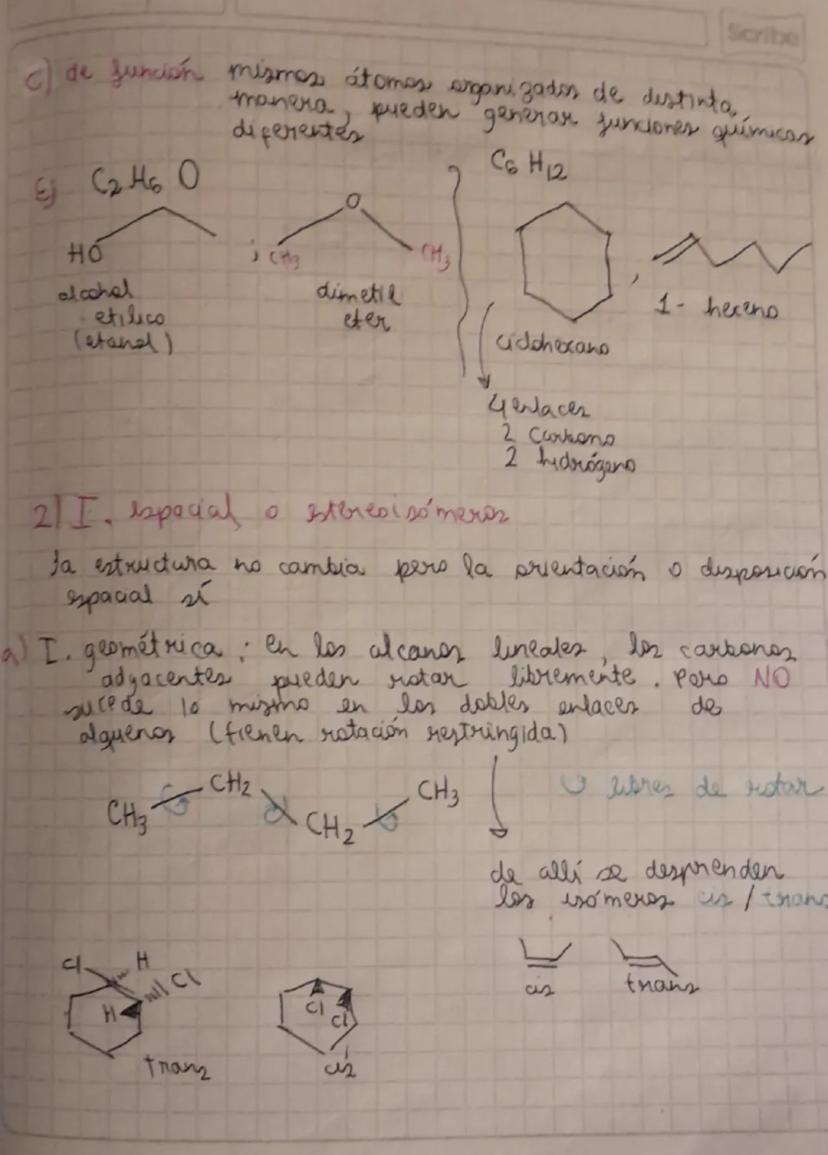 Scribe
c) de función mismos átomos organizados de distinta
manera, pueden generar funciones químicas
diferentes
Ej C₂H₆O
HO
; CH₃ O CH₃
alcohol
etílico
(etanol)
dimetil
eter
C₆H₁₂
,
ciclohexano
1- hexeno
4 enlaces
2 carbono
2 hidrógeno
2) I. espacial o estereoisómeros
la estructura no cambia pero la orientación o disposición
espacial sí
a) I. geométrica: en los alcanos lineales, los carbonos
adyacentes pueden rotar libremente. Pero NO
sucede lo mismo en los dobles enlaces de
alquenos (tienen rotación restringida)
CH₃ CH₂ CH₂ CH₃
libres de rotar
de allí se desprenden
los isómeros cis / trans
cis trans
Cl H Cl H
trans
Cl Cl
cis